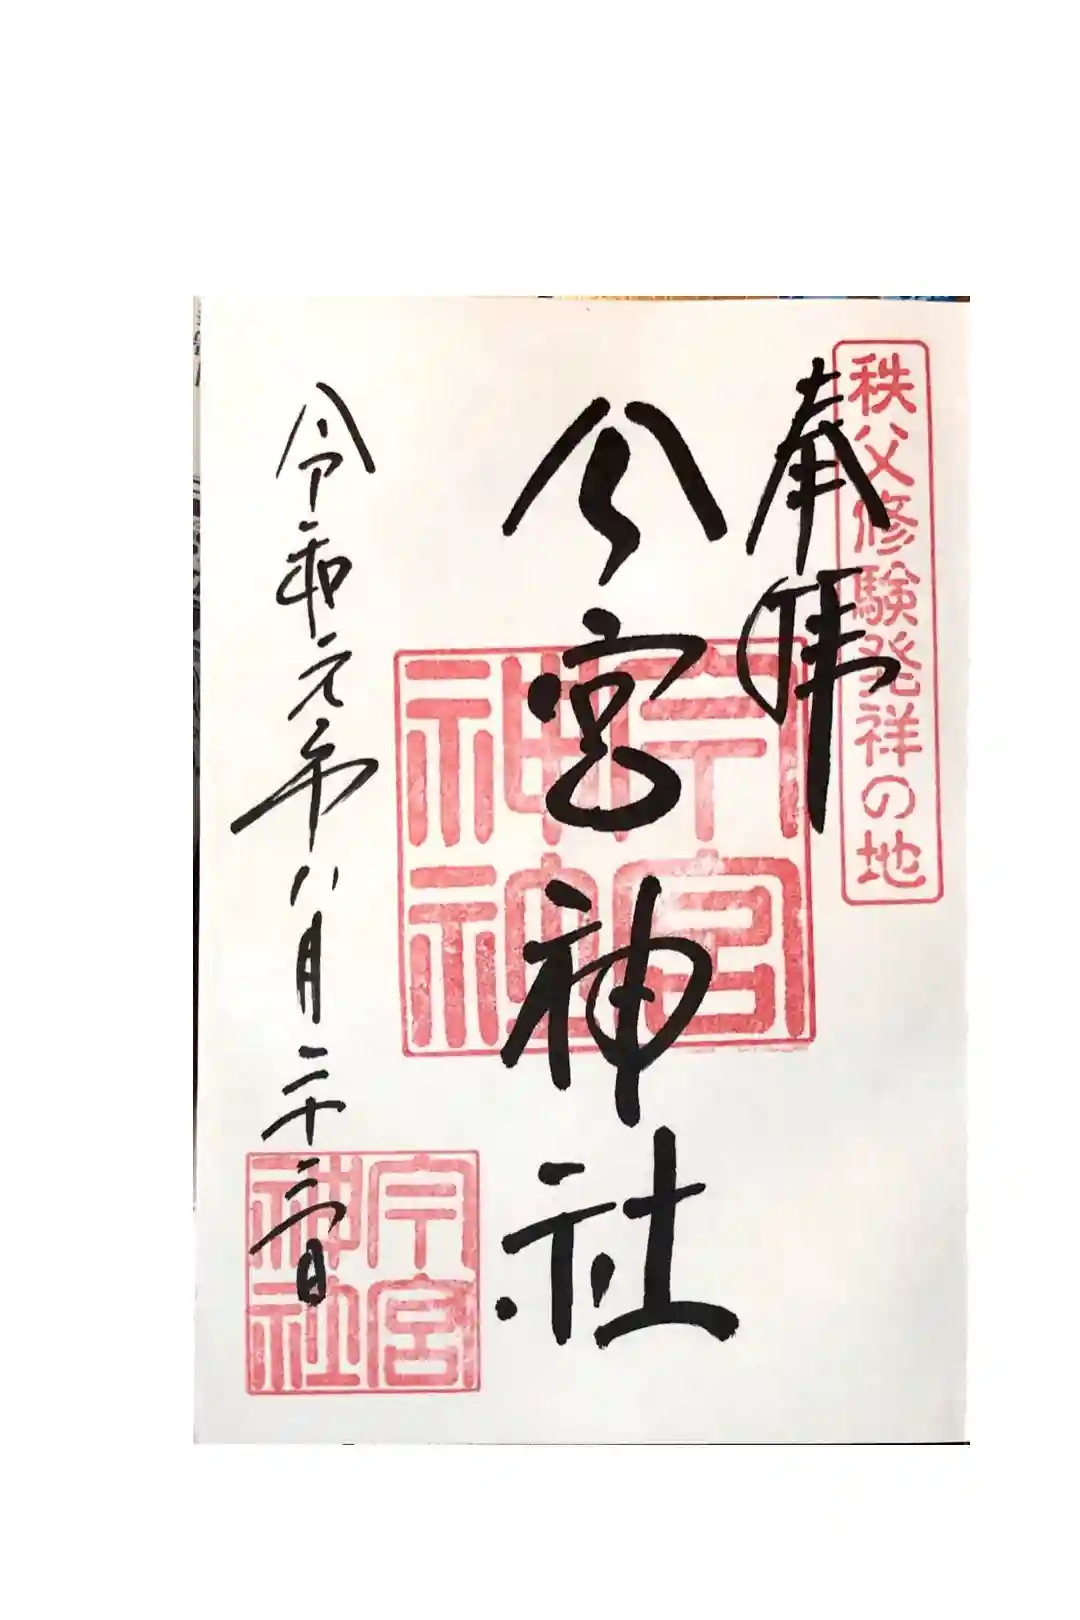 秩父修験発祥の地
奉拝
今宮神社
今宮
神社
令和元年八月二十三日
今宮
神社